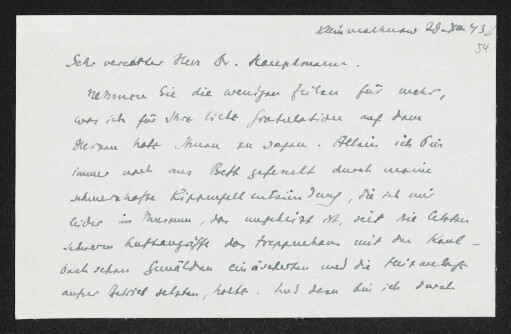 Kleinmachnow 29. XII. 43
54
Sehr verehrter Herr Dr. Hauptmann.
Nehmen Sie die wenigen Zeilen für mehr,
was ich für Ihre liebe Gratulation auf dem
Herzen habe Ihnen zu sagen. Allein ich bin
immer noch ans Bett gefesselt durch meine
schmerzhafte Rippenfellentzündung, die ich mir
leider im Museum, das ungeheizt ist, seit die letzten
schweren Luftangriffe das Treppenhaus mit den Kaul-
bachschen Gemälden einäscherten und die Heizanlage
außer Betrieb setzten, holte. Und dann bin ich durch